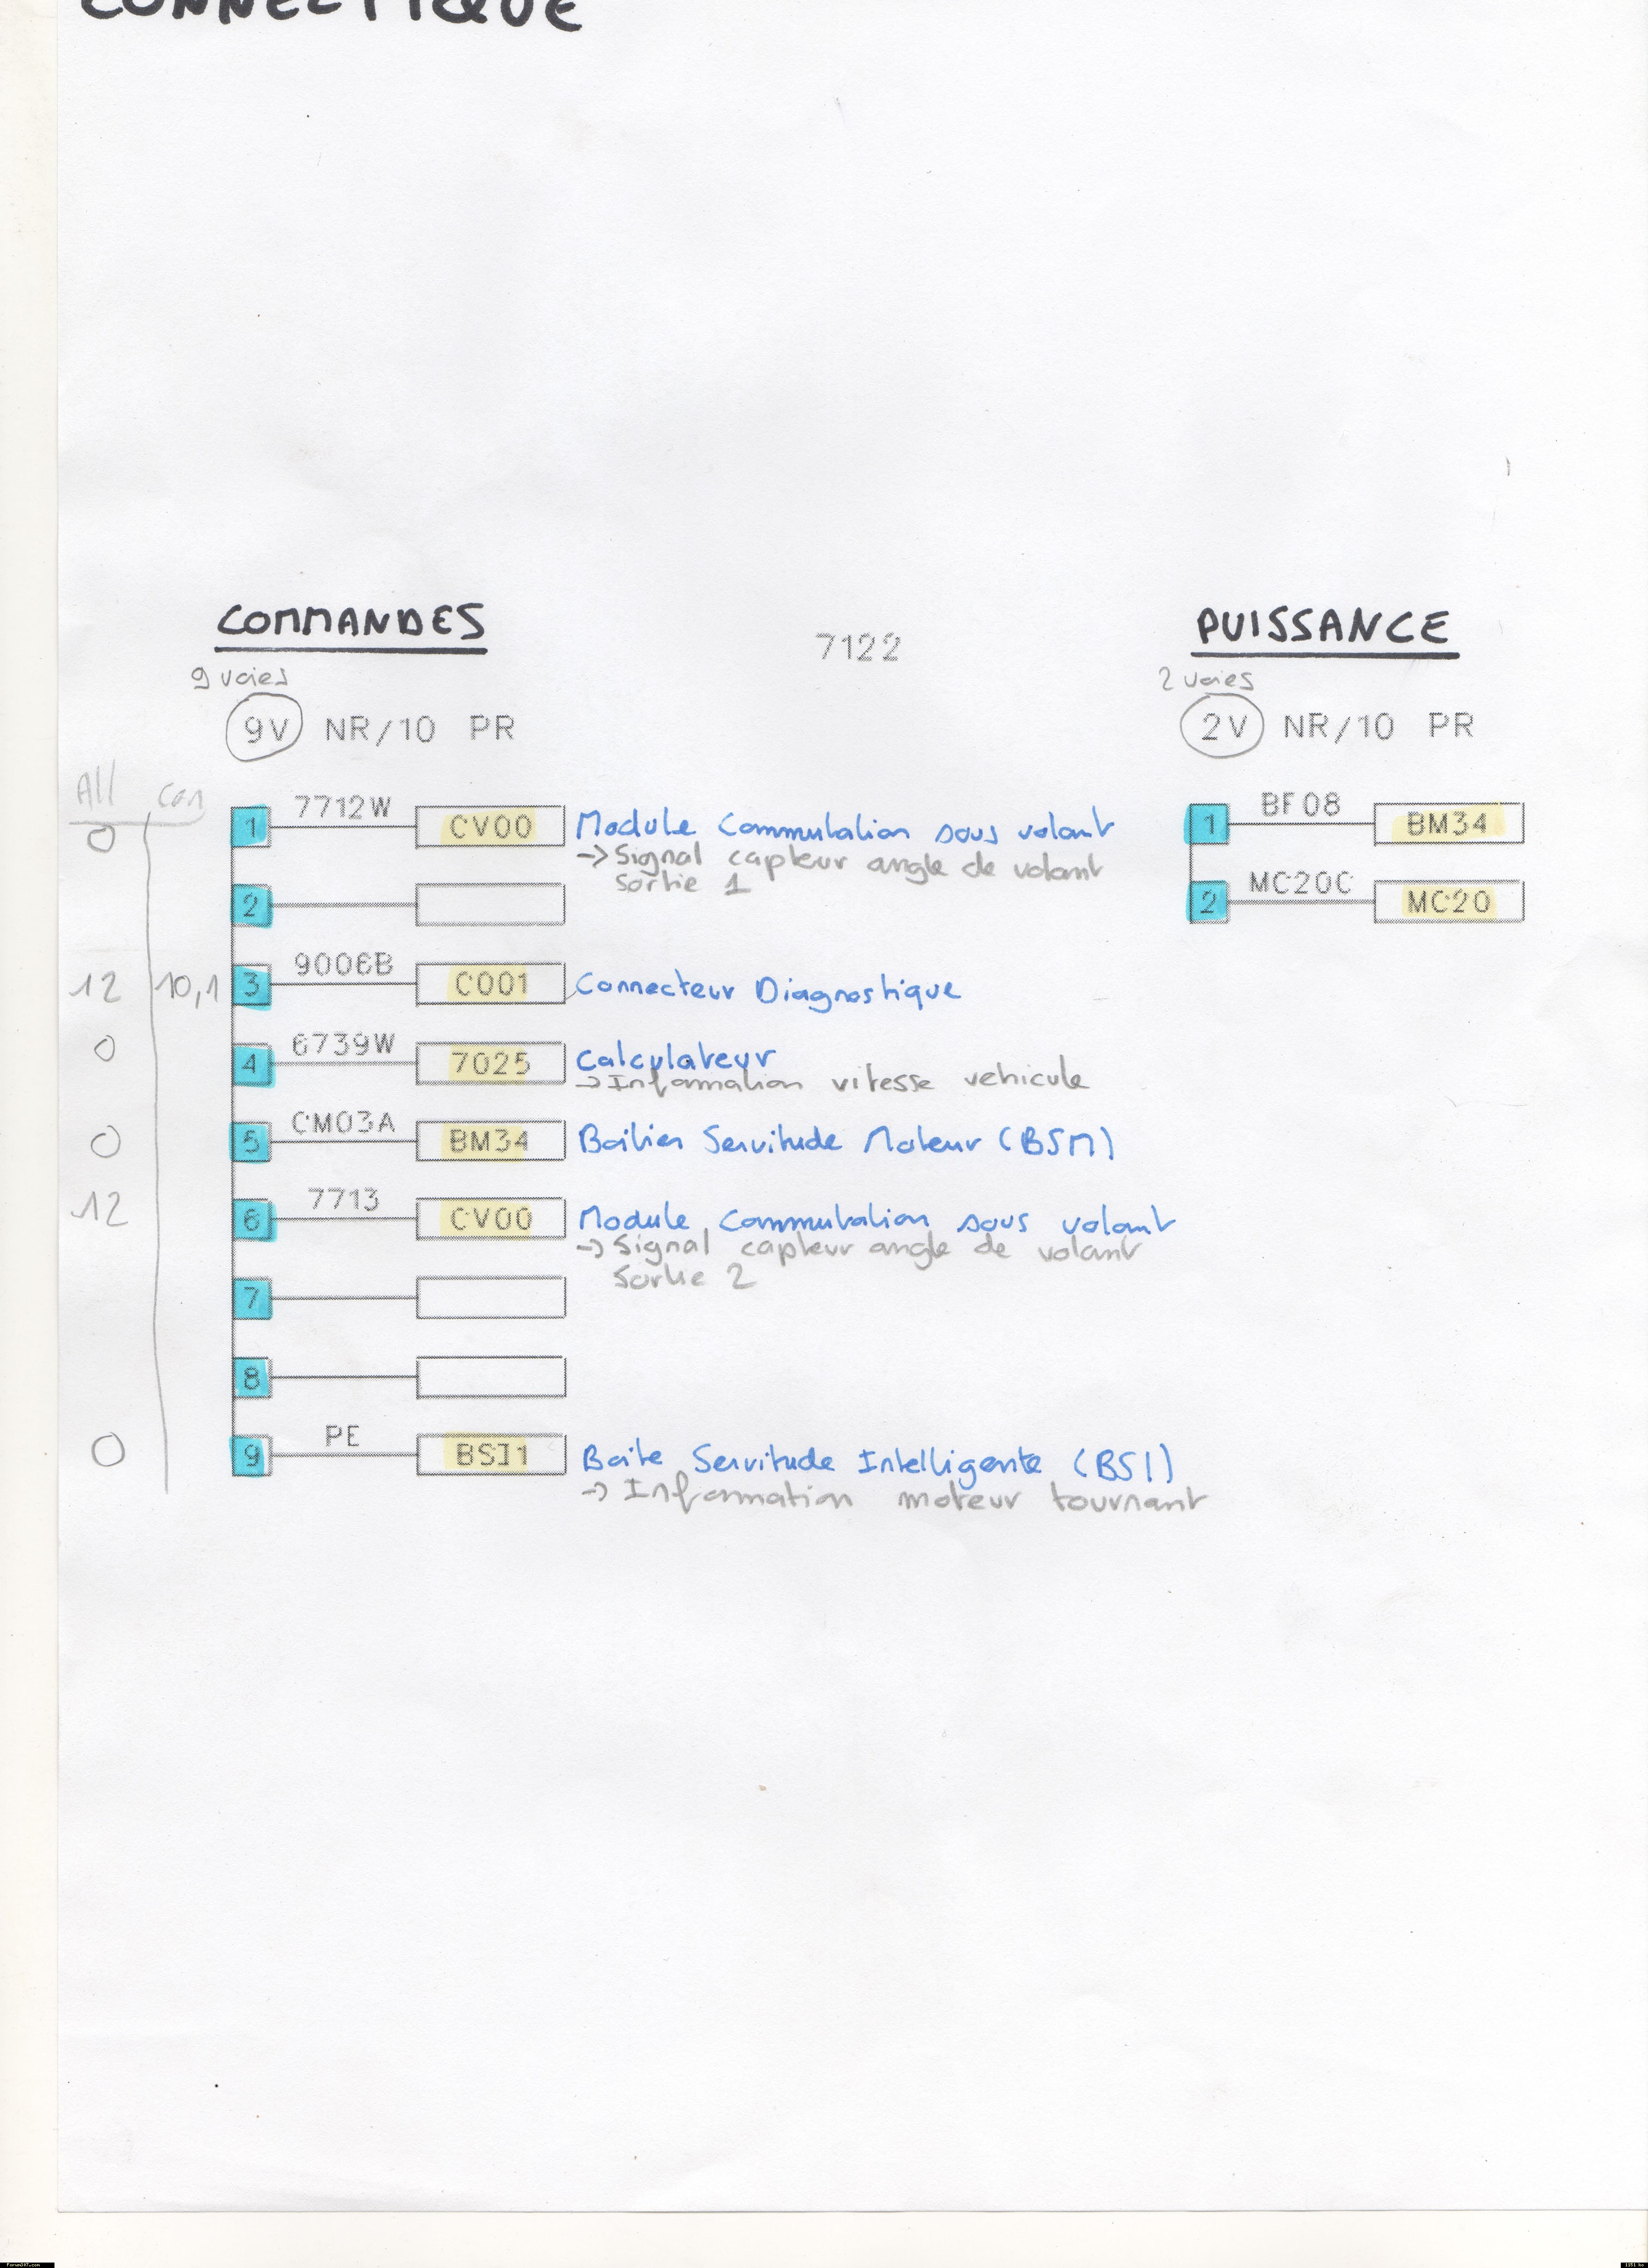 CONNECTIQUE
COMMANDES
7122
PUISSANCE
9 voies
2 voies
9V NR/10 PR
2V NR/10 PR
All Con
0 1 7712W CV00 Module Commutation sous volant
-> Signal capteur angle de volant
Sortie 1
2
12 10,1 3 9006B C001 Connecteur Diagnostique
0 4 6739W 7025 Calculateur
-> Information vitesse vehicule
0 5 CM03A BM34 Boitier Servitude Moteur (BSM)
12 6 7713 CV00 Module Commutation sous volant
-> Signal capteur angle de volant
Sortie 2
7
8
0 9 PE BSI1 Boite Servitude Intelligente (BSI)
-> Information moteur tournant
1 BF08 BM34
2 MC20C MC20
Forum247.com
1151 ko